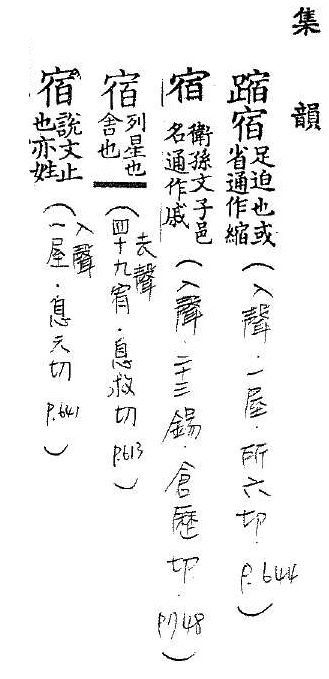 集韻
蹜宿足迫也或省通作縮（入聲．一屋．所六切．P.644）
宿衛孫文子邑名通作戚（入聲．二十三錫．倉歷切．P.748）
宿列星也舍也（去聲四十九宥．息救切P.613）
宿說文止也亦姓（入聲一屋．息六切P.641）